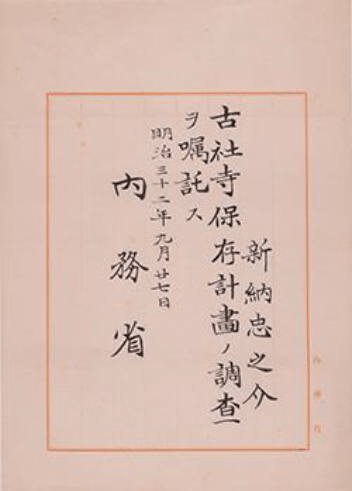 新納忠之介
古社寺保存計畫ノ調査
ヲ嘱託ス
明治三十二年九月廿七日
内務省
内務省